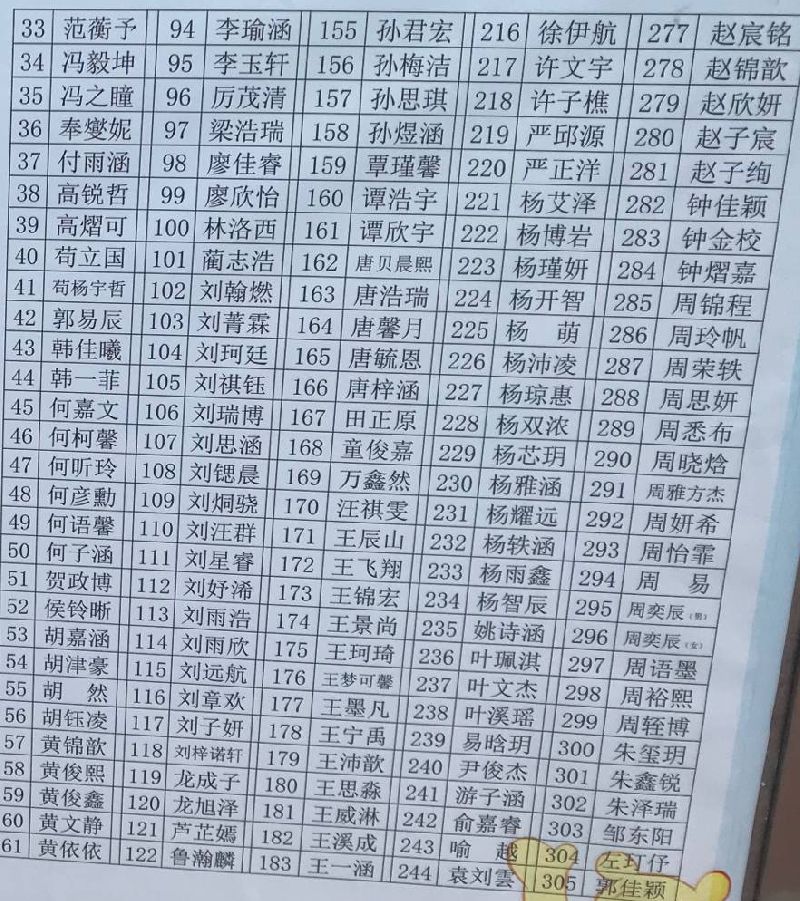 33 范蘅予 94 李瑜涵 155 孙君宏 216 徐伊航 277 赵宸铭
34 冯毅坤 95 李玉轩 156 孙梅洁 217 许文宇 278 赵锦歆
35 冯之瞳 96 厉茂清 157 孙思琪 218 许子樵 279 赵欣妍
36 奉燮妮 97 梁浩瑞 158 孙煜涵 219 严邱源 280 赵子宸
37 付雨涵 98 廖佳睿 159 覃瑾馨 220 严正洋 281 赵子绚
38 高锐哲 99 廖欣怡 160 谭浩宇 221 杨艾泽 282 钟佳颖
39 高熠可 100 林洛西 161 谭欣宇 222 杨博岩 283 钟金校
40 苟立国 101 蔺志浩 162 唐贝晨熙 223 杨瑾妍 284 钟熠嘉
41 苟杨宇哲 102 刘翰燃 163 唐浩瑞 224 杨开智 285 周锦程
42 郭易辰 103 刘菁霖 164 唐馨月 225 杨 萌 286 周玲帆
43 韩佳曦 104 刘珂廷 165 唐毓恩 226 杨沛凌 287 周荣轶
44 韩一菲 105 刘祺钰 166 唐梓涵 227 杨琼惠 288 周思妍
45 何嘉文 106 刘瑞博 167 田正原 228 杨双浓 289 周悉布
46 何柯馨 107 刘思涵 168 童俊嘉 229 杨芯玥 290 周晓焓
47 何昕玲 108 刘锶晨 169 万鑫然 230 杨雅涵 291 周雅方杰
48 何彦勳 109 刘炯骁 170 汪祺雯 231 杨耀远 292 周妍希
49 何语馨 110 刘汪群 171 王辰山 232 杨轶涵 293 周怡霏
50 何子涵 111 刘星睿 172 王飞翔 233 杨雨鑫 294 周 易
51 贺政博 112 刘妤浠 173 王锦宏 234 杨智辰 295 周奕辰（男）
52 侯铃晰 113 刘雨浩 174 王景尚 235 姚诗涵 296 周奕辰（女）
53 胡嘉涵 114 刘雨欣 175 王珂琦 236 叶珮淇 297 周语墨
54 胡津豪 115 刘远航 176 王梦可馨 237 叶文杰 298 周裕熙
55 胡 然 116 刘章欢 177 王墨凡 238 叶溪瑶 299 周轾博
56 胡钰凌 117 刘子妍 178 王宁禹 239 易晗玥 300 朱玺玥
57 黄锦歆 118 刘梓诺轩 179 王沛歆 240 尹俊杰 301 朱鑫锐
58 黄俊熙 119 龙成子 180 王思淼 241 游子涵 302 朱泽瑞
59 黄俊鑫 120 龙旭泽 181 王威淋 242 俞嘉睿 303 邹东阳
60 黄文静 121 芦芷嫣 182 王溪成 243 喻 越 304 左玎仔
61 黄依依 122 鲁瀚麟 183 王一涵 244 袁刘雲 305 郭佳颖